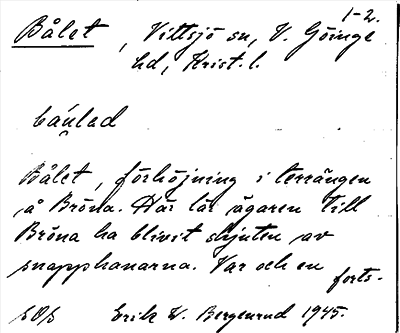 1-2.
Bålet, Vittsjö sn, V. Göinge
hd, Krist. l.
Bålet, förhöjning i terrängen
å Bröna. Här lär ägaren till
Bröna ha blivit skjuten av
snapphanarna. Var och en
forts.
SOS Erik W. Bergenrud 1945.